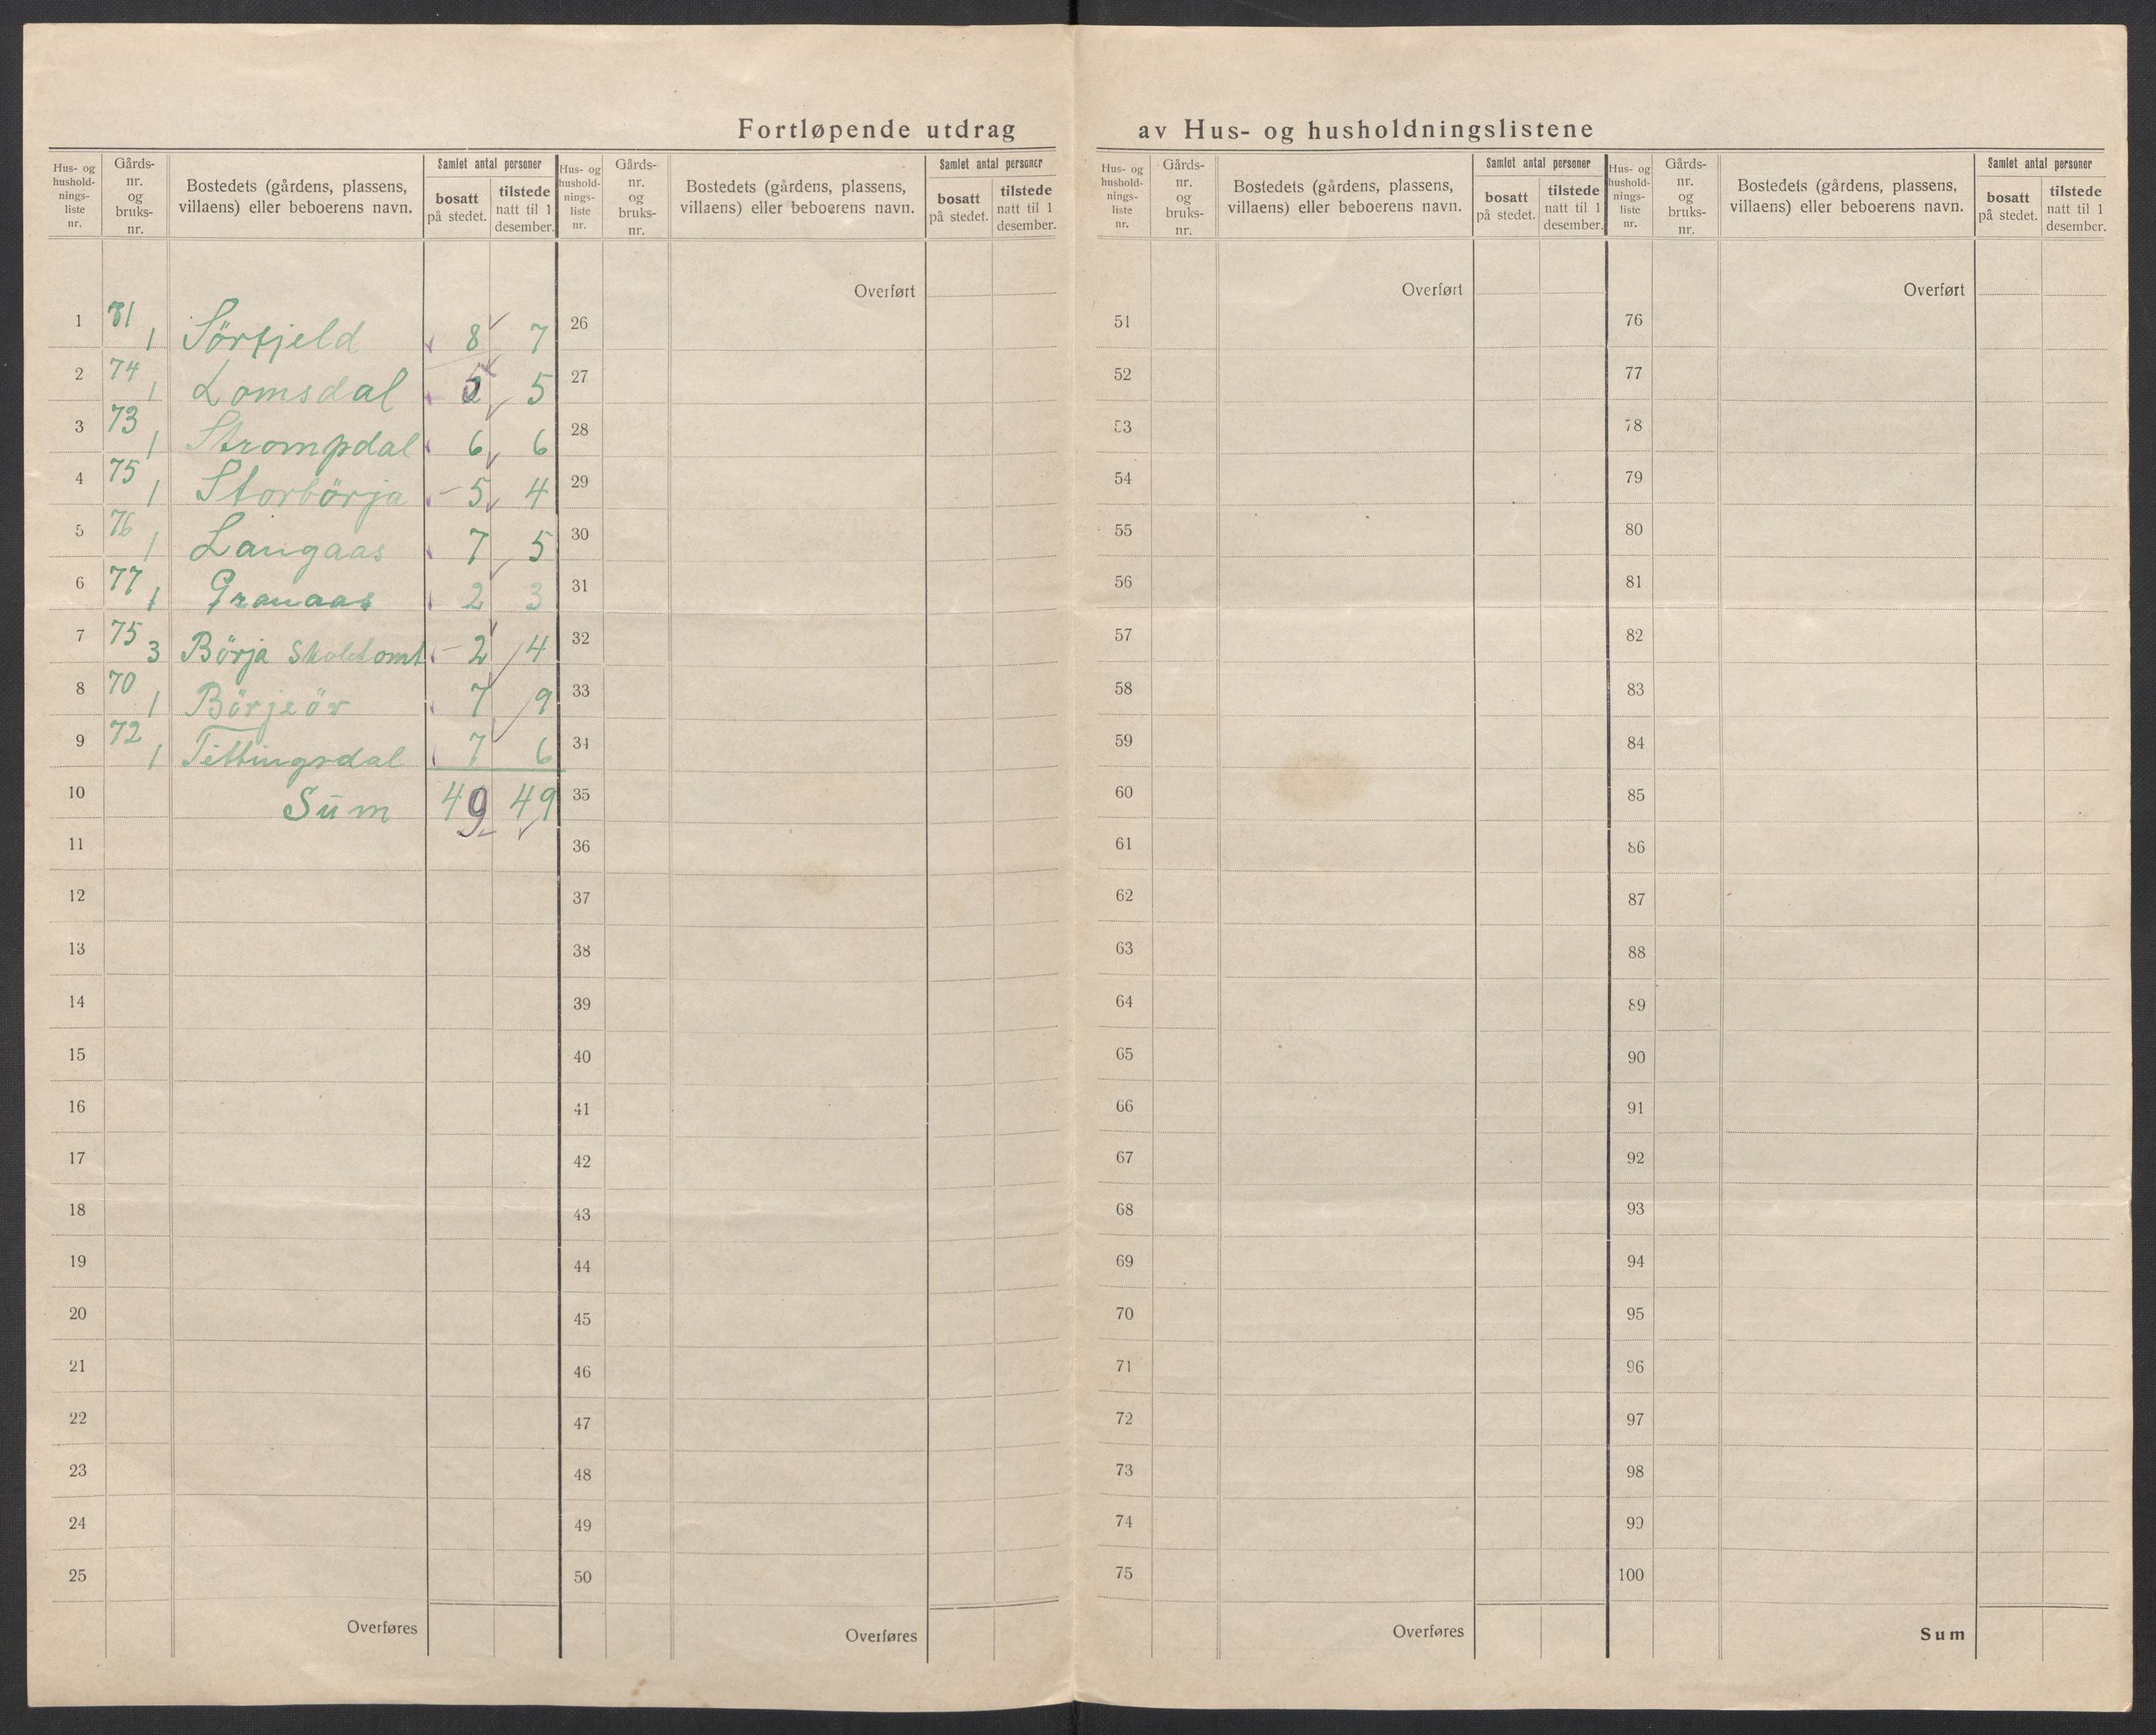 Fortløpende utdrag av Hus- og husholdningslistene
Hus- og husholdnings-liste nr.
Gårds-nr. og bruks-nr.
Bostedets (gårdens, plassens, villaens) eller beboerens navn.
Samlet antal personer
bosatt på stedet.
tilstede natt til 1 desember.
Hus- og husholdnings-liste nr.
Gårds-nr. og bruks-nr.
Bostedets (gårdens, plassens, villaens) eller beboerens navn.
Samlet antal personer
bosatt på stedet.
tilstede natt til 1 desember.
Hus- og husholdnings-liste nr.
Gårds-nr. og bruks-nr.
Bostedets (gårdens, plassens, villaens) eller beboerens navn.
Samlet antal personer
bosatt på stedet.
tilstede natt til 1 desember.
Hus- og husholdnings-liste nr.
Gårds-nr. og bruks-nr.
Bostedets (gårdens, plassens, villaens) eller beboerens navn.
Samlet antal personer
bosatt på stedet.
tilstede natt til 1 desember.
1 1 Sörfjeld 8 7
2 74 1 Lomsdal 5 5
3 73 1 Strompdal 6 6
4 75 1 Storbörja 5 4
5 76 1 Langaas 7 5
6 77 1 Granaas 2 3
7 75 3 Börja Skoletomt 2 4
8 70 1 Börjeör 7 9
9 72 1 Tettingsdal 7 6
10 Sum 49 49
11
12
13
14
15
16
17
18
19
20
21
22
23
24
25
Overføres
Overført
26
27
28
29
30
31
32
33
34
35
36
37
38
39
40
41
42
43
44
45
46
47
48
49
50
Overføres
Overført
51
52
53
54
55
56
57
58
59
60
61
62
63
64
65
66
67
68
69
70
71
72
73
74
75
Overføres
Overført
76
77
78
79
80
81
82
83
84
85
86
87
88
89
90
91
92
93
94
95
96
97
98
99
100
Sum